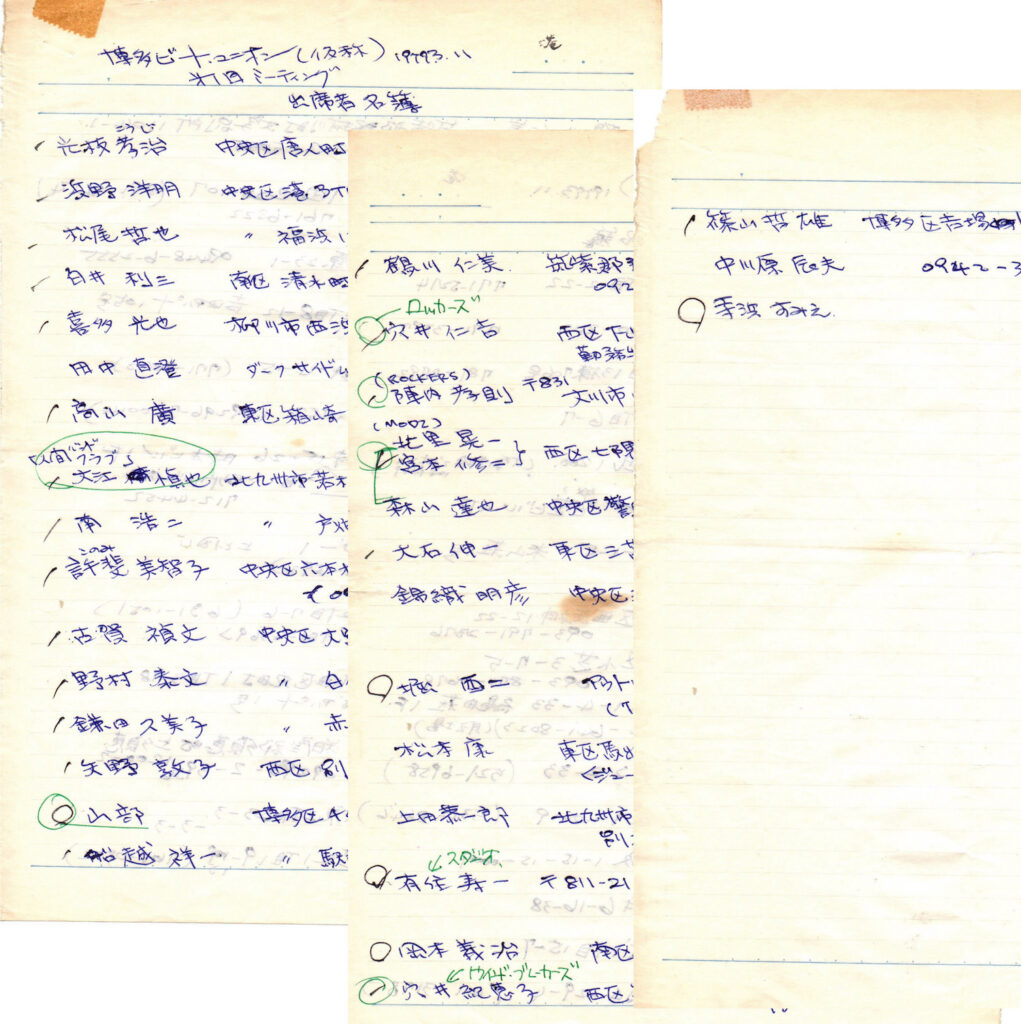 博多ビート・ユニオン(仮称) 1979 3.11
第1回ミーティング
出席者名簿
こうじ
光枝 孝治 中央区唐人町
波野 洋明 中央区港
松尾 哲也 〃 福浜
白井 利三 南区 清水町
喜多 光也 柳川市西浜
田中 直澄 ダークサイド
高山 廣 東区箱崎
人間クラブ
大江 慎也 北九州市若
南 浩二 〃 戸畑
このみ
許斐 美智子 中央区六本松
古賀 禎文 中央区大
野村 泰文 〃
鎌田 久美子 〃 赤
矢野 敦子 西区 別
山部 博多区
船越 祥一 〃 駅
港
鶴川 仁美 筑紫郡
092
ロッカーズ
穴井 仁吉 西区下山
勤務
(ROCKERS)
陣内 孝則 〒831
大川市
(MODZ)
北里 晃一
宮本 修二 } 西区七隈
森山 達也 中央区警
大石 伸一 東区三苫
錦織 明彦 中央区
堀 酉二
松本 康 東区馬出
<ジュー
上田 恭一郎 北九州市
スタジオ
有住 寿一 〒811-21
岡本 義治 南区
ウインド・ブレーカーズ
穴井 紀恵子 西区
篠山 哲雄 博多区吉場
中川原 辰夫 0942-3
手浜 すみえ